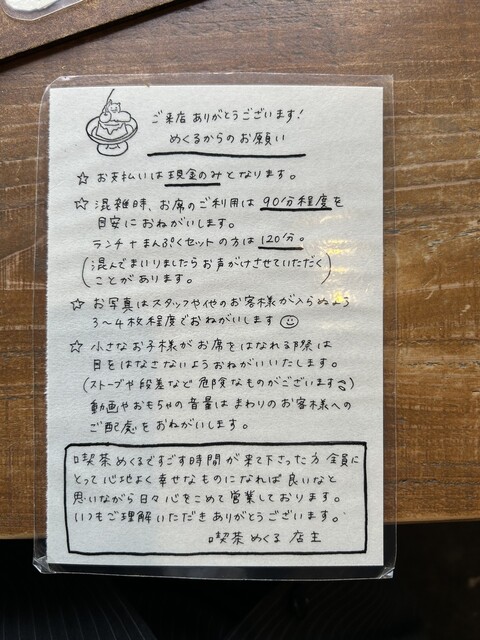 ご来店ありがとうございます!
めくるからのお願い
☆ お支払いは現金のみとなります。
☆ 混雑時、お席のご利用は90分程度を
目安におねがいします。
ランチ+まんぷくセットの方は120分。
(混んでまいりましたらお声がけさせていただく
ことがあります。)
☆ お写真はスタッフや他のお客様が入らぬよう
3〜4枚程度でおねがいします☺
☆ 小さなお子様がお席をはなれる際は
目をはなさないようおねがいいたします。
(ストーブや段差など危険なものがございます)
動画やおもちゃの音量はまわりのお客様への
ご配慮をおねがいします。
喫茶めくるですごす時間が来て下さった方全員に
とって心地よく幸せなものになれば良いなと
思いながら日々心をこめて営業しております。
いつもご理解いただきありがとうございます。
喫茶めくる 店主